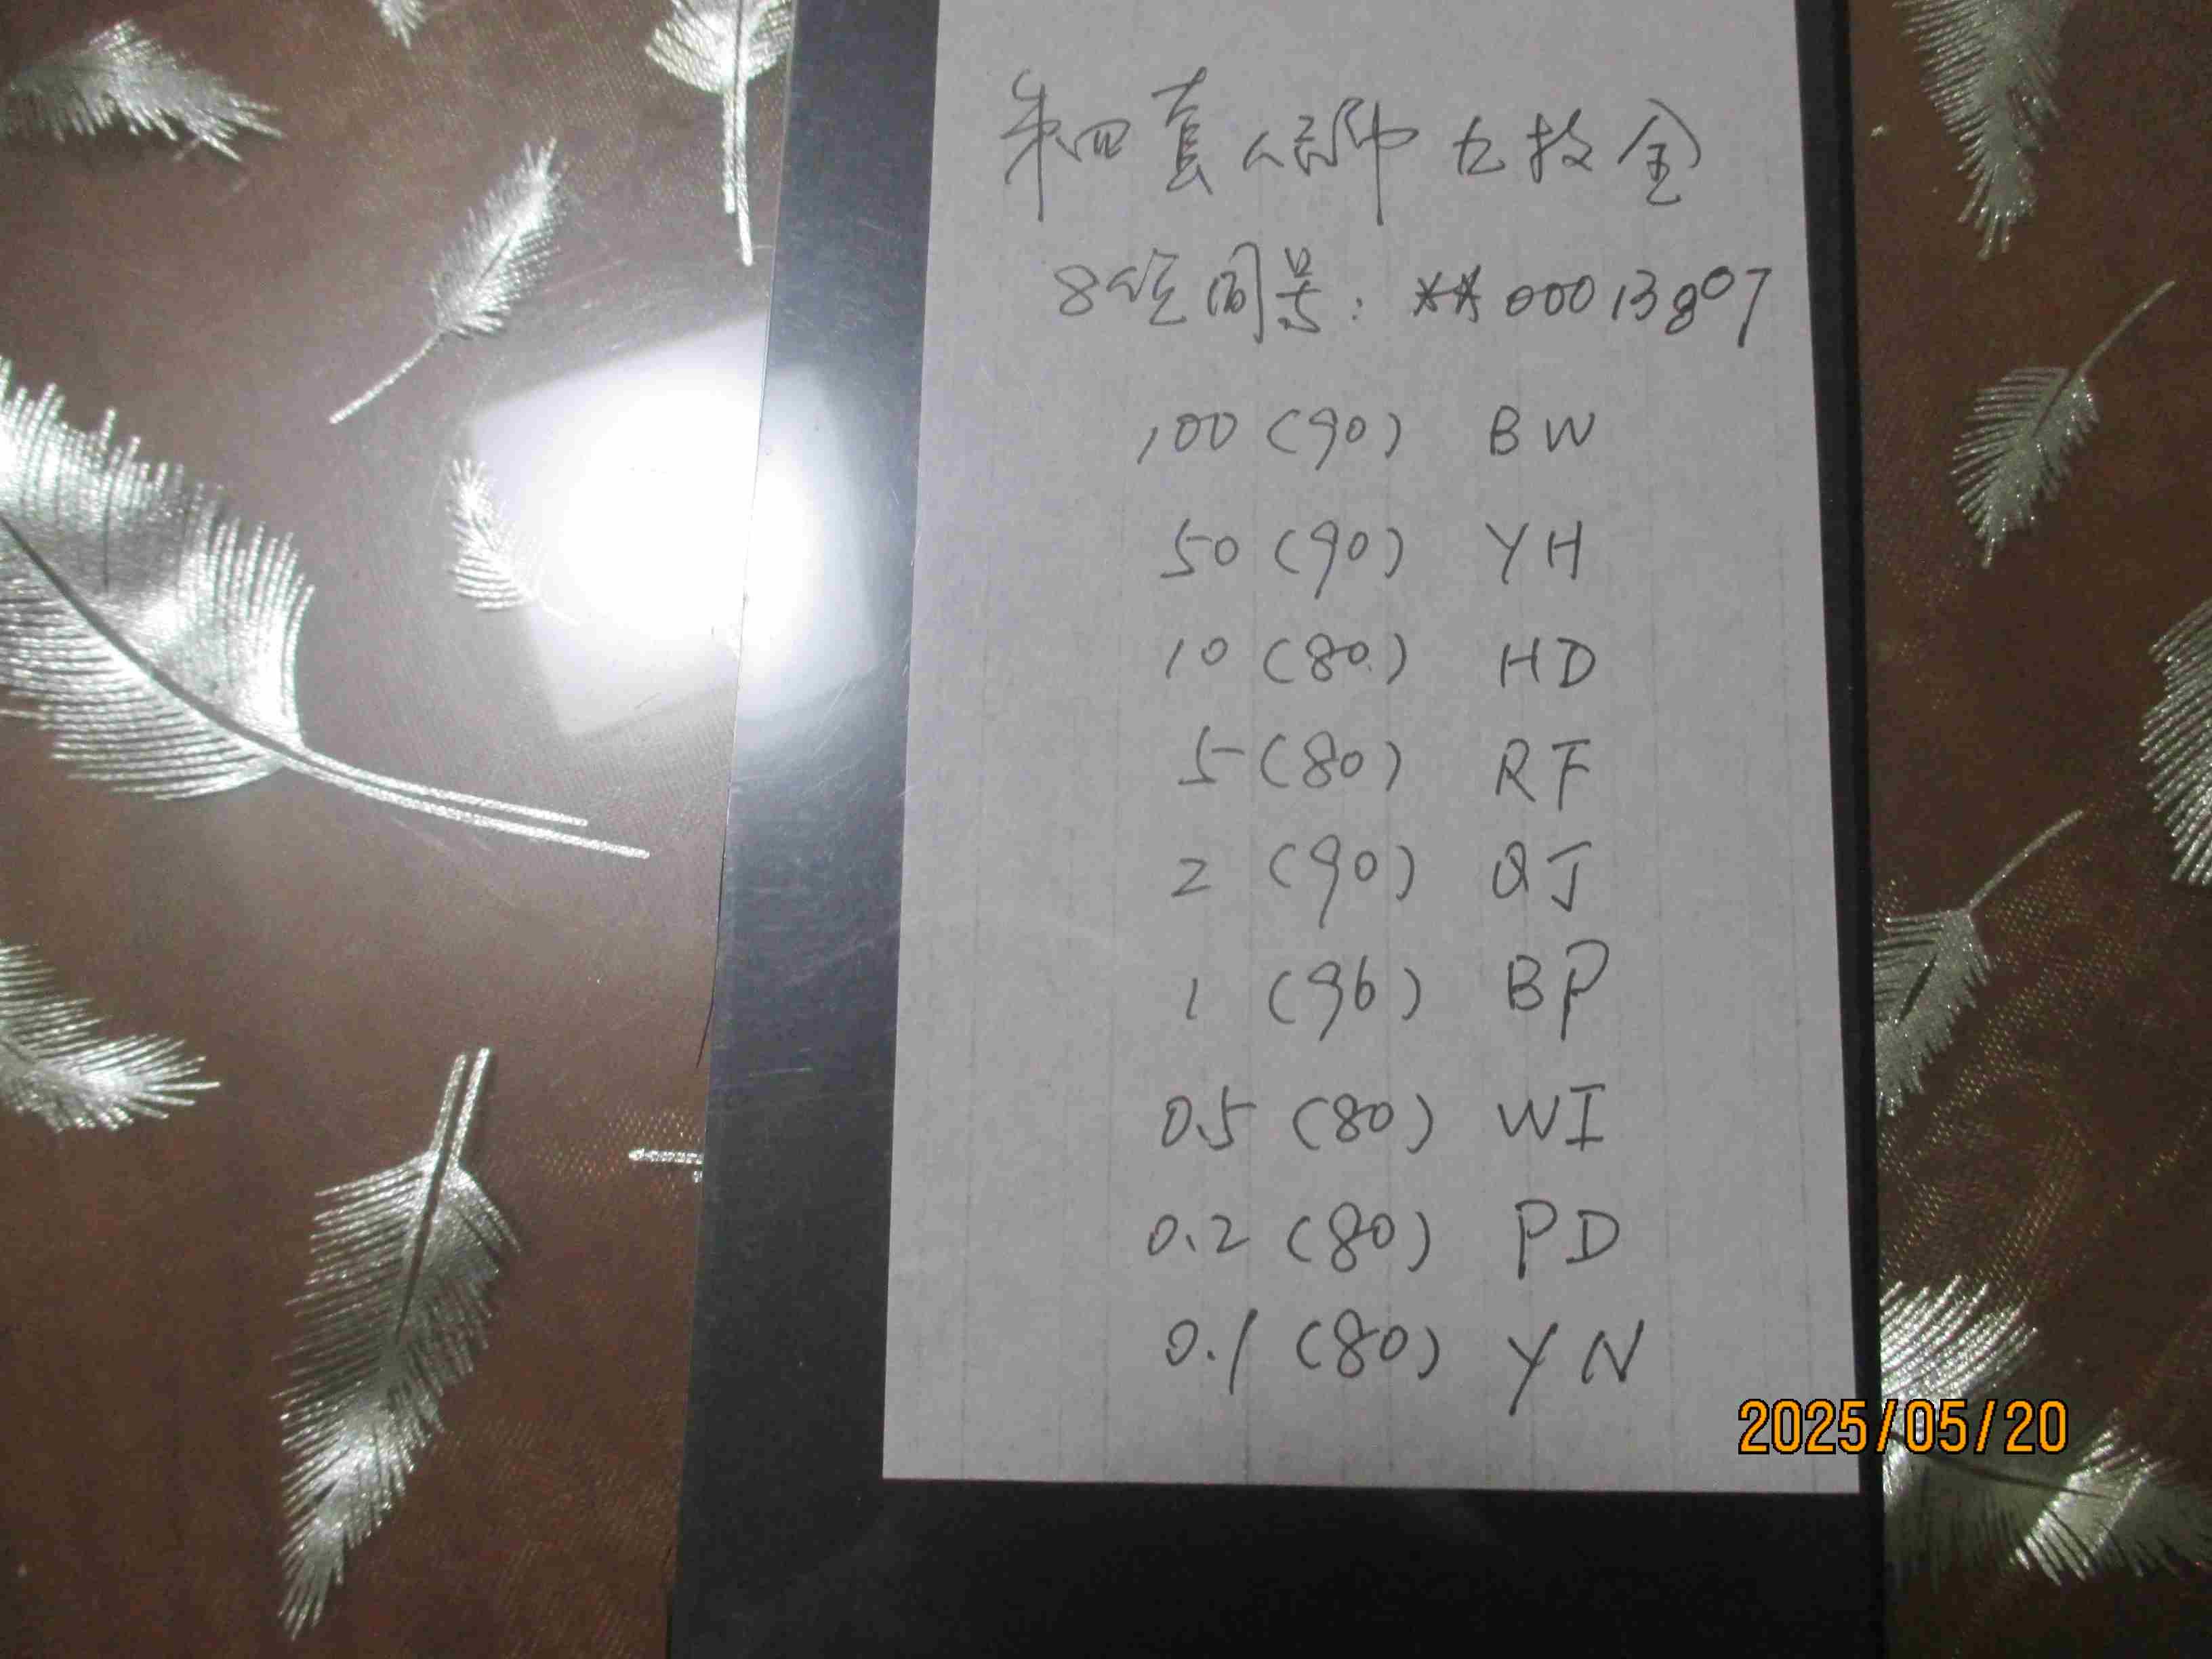 第四套人民币 九枚全
8位同号: **00013807
100 (90) BW
50 (90) YH
10 (80) HD
5 (80) RF
2 (90) QJ
1 (96) BP
0.5 (80) WI
0.2 (80) PD
0.1 (80) YN
2025/05/20